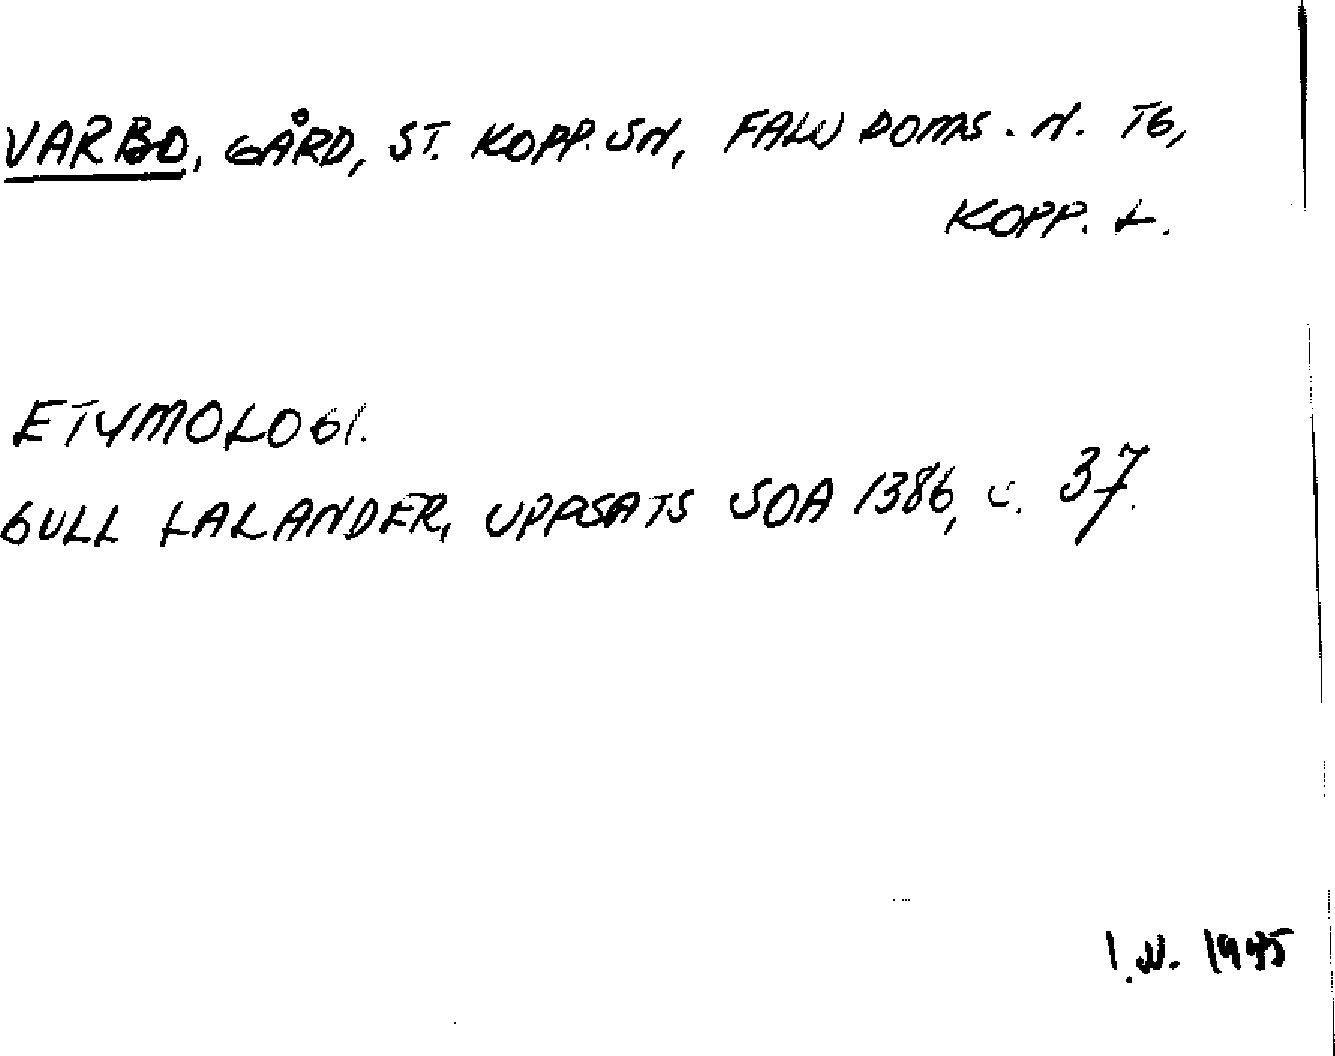 VARBO, GÅRD, ST. KOPP. SN, FALU DOMS. N. TG,
KOPP. L.
ETYMOLOGI.
GULL LALANDER, UPPSATS SOA 1386, S. 37.
I.W. 1995